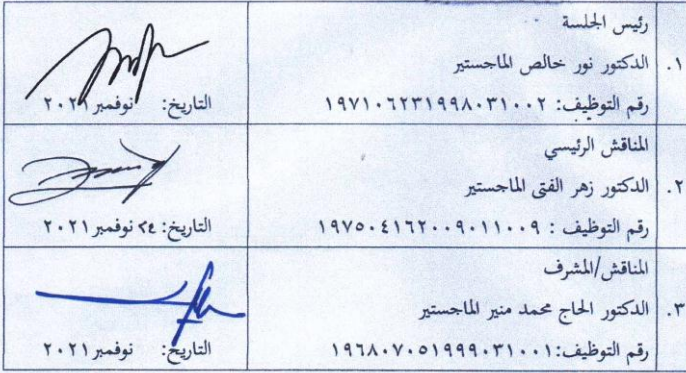 رئيس الجلسة
١. الدكتور نور خالص الماجستير
رقم التوظيف: ١٩٧١٠٦٢٣١٩٩٨٠٣١٠٠٢
التاريخ: نوفمبر ٢٠٢١
المناقش الرئيسي
٢. الدكتور زهر الفتى الماجستير
رقم التوظيف : ١٩٧٥٠٤١٦٢٠٠٩٠١١٠٠٩
التاريخ: ٢٤ نوفمبر ٢٠٢١
المناقش/المشرف
٣. الدكتور الحاج محمد منير الماجستير
رقم التوظيف:١٩٦٨٠٧٠٥١٩٩٩٠٣١٠٠١
التاريخ: نوفمبر ٢٠٢١